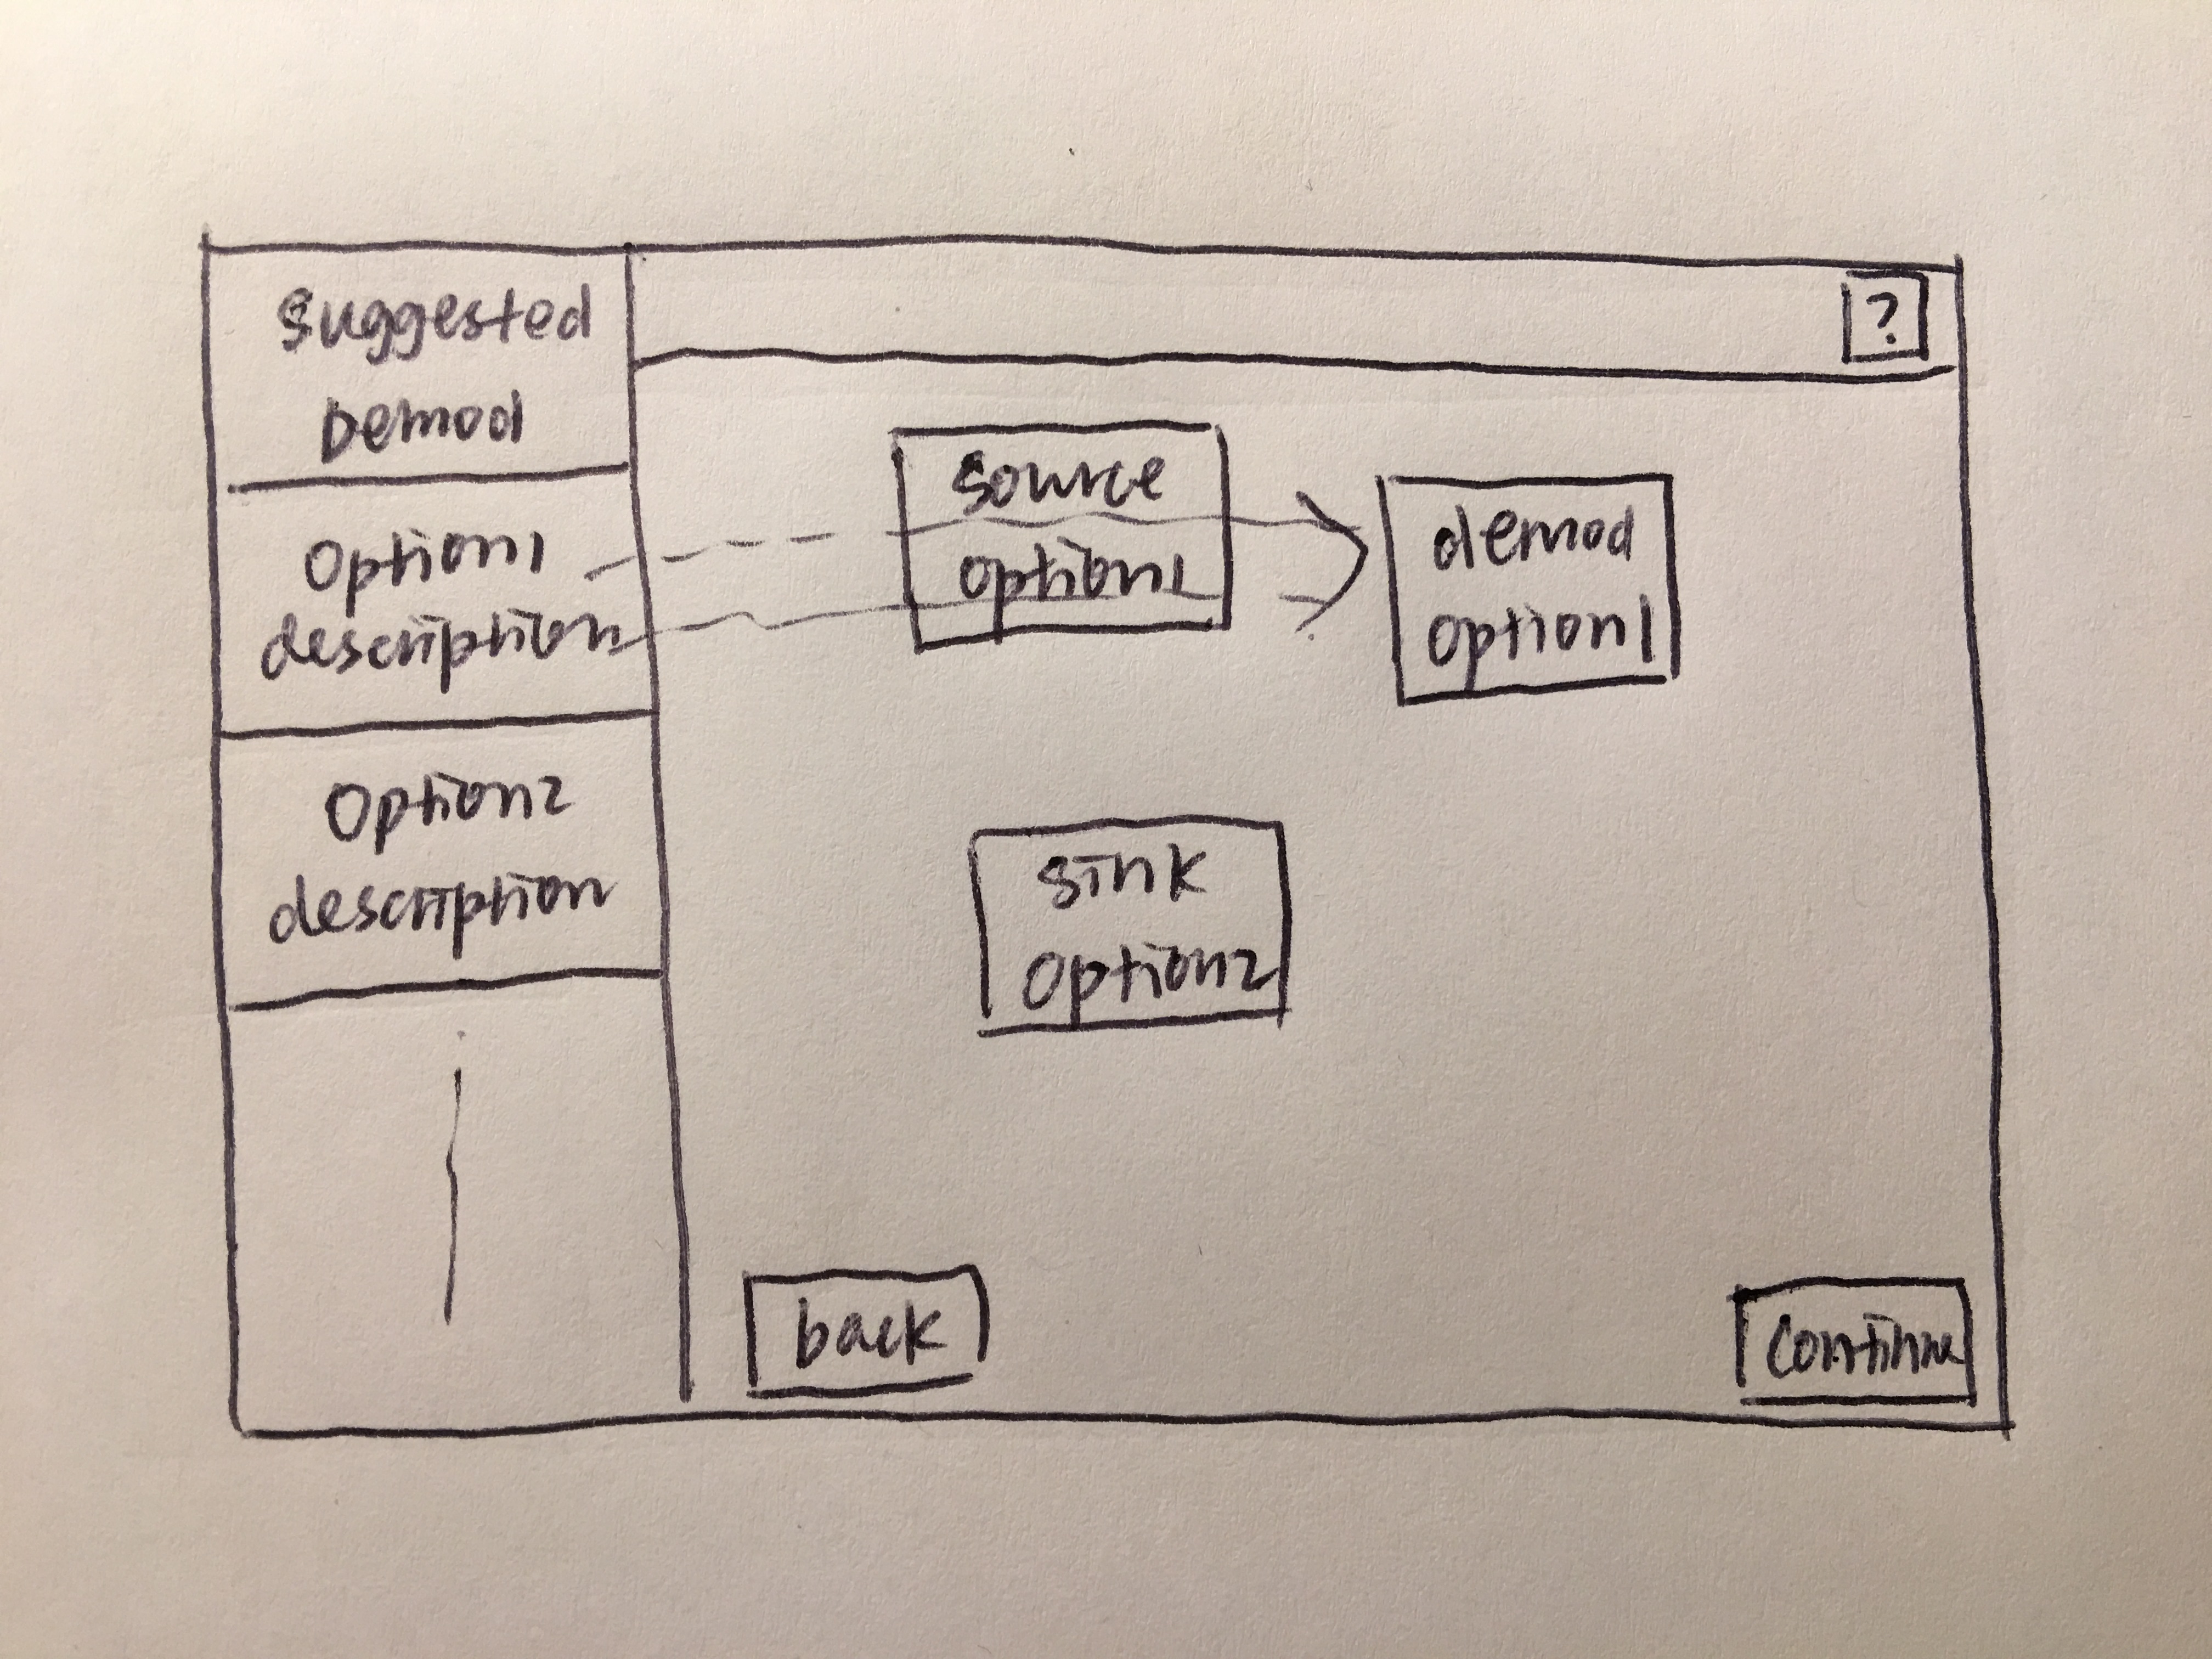 Suggested
Demod
Option1
description
Option2
description
?
source
option1
demod
option1
sink
option2
back
continue